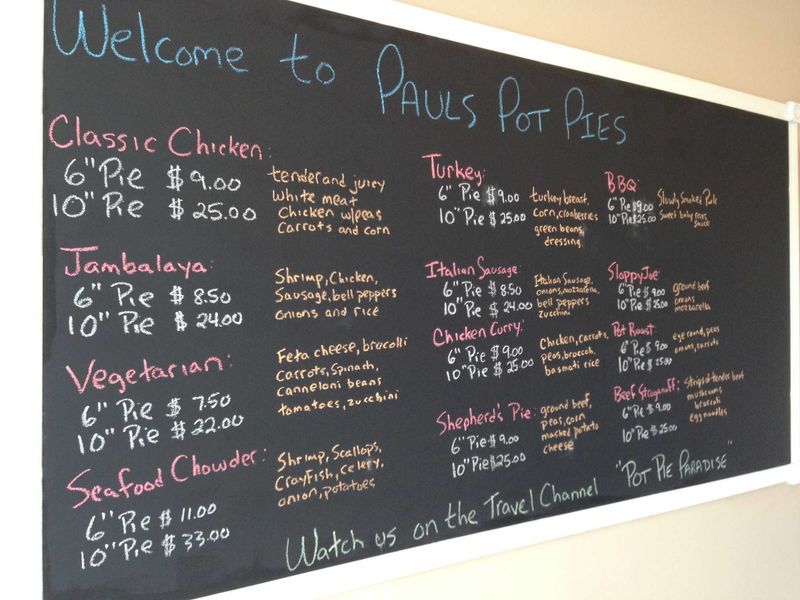 Welcome to PAULS POT PIES
Classic Chicken:
6" Pie $9.00
10" Pie $25.00
tender and juicy
white meat
Chicken w/peas
Carrots and corn
Jambalaya:
6" Pie $8.50
10" Pie $24.00
Shrimp, Chicken,
Sausage, bell peppers
onions and rice
Vegetarian:
6" Pie $7.50
10" Pie $22.00
Feta cheese, brocolli
Carrots, Spinach,
Canneloni beans
tomatoes, zucchini
Seafood Chowder:
6" Pie $11.00
10" Pie $33.00
Shrimp, Scallops,
Crayfish, celery,
onion, potatoes
Turkey:
6" Pie $9.00
10" Pie $25.00
turkey breast,
corn, cranberries
green beans,
dressing
Italian Sausage:
6" Pie $8.50
10" Pie $24.00
Italian Sausage,
onions, mozzarella,
bell peppers
zucchini
Chicken Curry:
6" Pie $9.00
10" Pie $25.00
Chicken, carrots,
peas, broccoli,
basmati rice
Shepherd's Pie:
6" Pie $9.00
10" Pie $25.00
ground beef,
peas, corn
mashed potato
cheese
BBQ:
6" Pie $9.00
10" Pie $25.00
Slowly Smoked Pork
Sweet baby rays
sauce
Sloppy Joe:
6" Pie $9.00
10" Pie $25.00
ground beef
onions
mozzarella
Pot Roast:
6" Pie $9.00
10" Pie $25.00
eye round, peas
onions, carrots
Beef Stroganoff:
6" Pie $9.00
10" Pie $25.00
Strips of tender beef
mushrooms
brocolli
egg noodles
Watch us on the Travel Channel "POT PIE PARADISE"